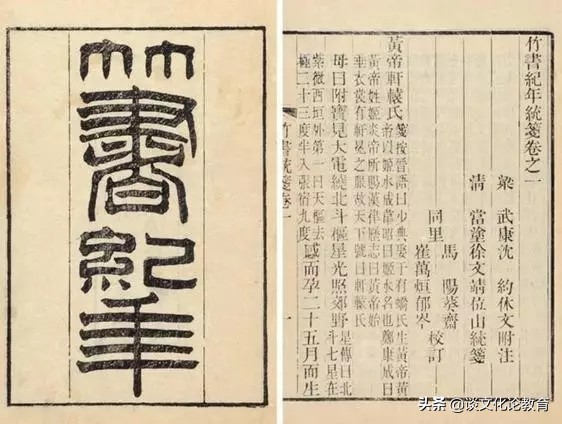 竹書紀年
竹書紀年統箋卷之一
梁 武康沈 約休文附注
清 當塗徐文靖位山統箋
同里 馬 陽葵齋
崔萬烜郁岑 校訂
黃帝軒轅氏 箋按晉語曰少典娶于有蟜氏生黃帝黃
帝以姬水成韋昭曰姬水名也鄭康成曰
黃帝姓姬炎帝所賜漢律歷志曰黃帝始
垂衣裳有軒冕之服故天下號曰軒轅氏
母曰附寶見大電繞北斗樞星光照郊野 星傳曰北
斗七星在
紫微西垣外第一曰天樞去
極二十三度半入張宿九度 感而孕二十五月而生
竹書統箋卷一
一
头条 @谈文化论教育